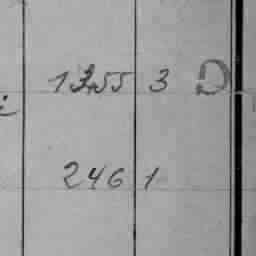 1355 3 D
246 1